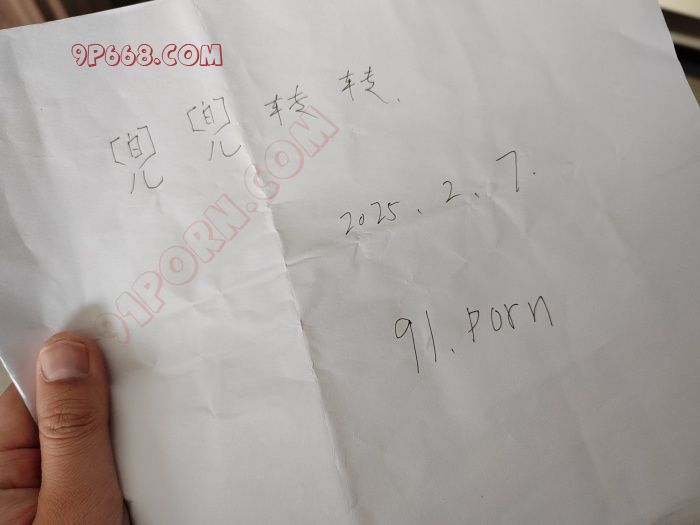 9P668.COM
兜兜转转.
91PORN.COM
2025、2、7.
91、Porn